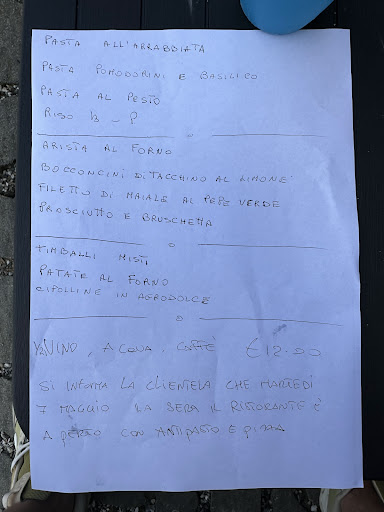 PASTA ALL'ARRABBIATA
PASTA POMODORINI E BASILICO
PASTA AL PESTO
RISO B - P
ARISTA AL FORNO
BOCCONCINI DI TACCHINO AL LIMONE
FILETTO DI MAIALE AL PEPE VERDE
PROSCIUTTO E BRUSCHETTA
TIMBALLI MISTI
PATATE AL FORNO
CIPOLLINE IN AGRODOLCE
VINO, ACQUA, CAFFÈ €12.00
SI INFORMA LA CLIENTELA CHE MARTEDÌ
7 MAGGIO LA SERA IL RISTORANTE È
APERTO CON ANTIPASTO E PIZZA